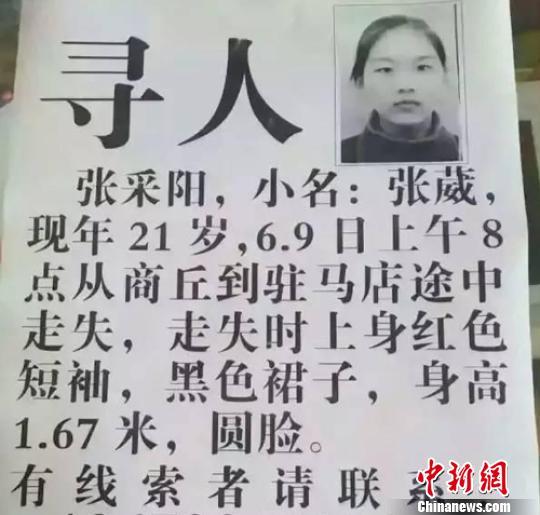 寻人
张采阳，小名：张葳，
现年21岁,6.9日上午8
点从商丘到驻马店途中
走失，走失时上身红色
短袖，黑色裙子，身高
1.67米，圆脸。
有线索者请联系
中新网
Chinanews.com